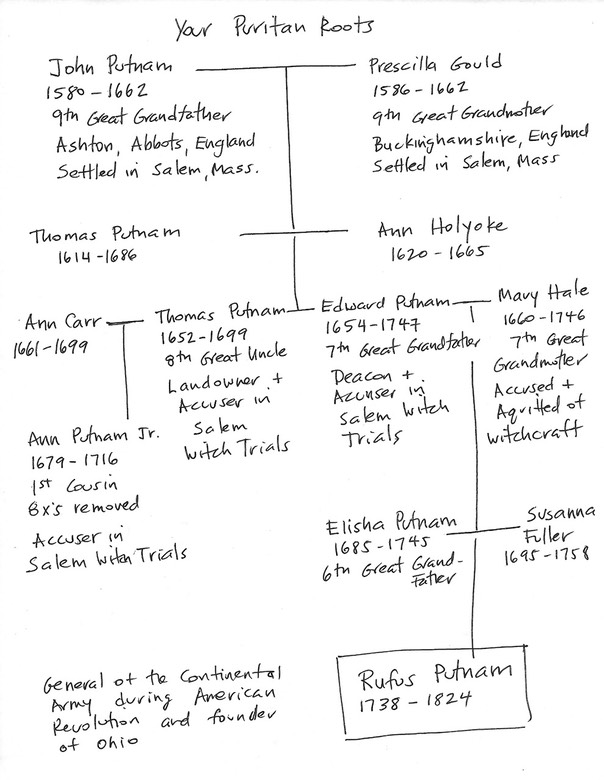 Your Puritan Roots
John Putnam
1580 - 1662
9th Great Grandfather
Ashton, Abbots, England
Settled in Salem, Mass.
Prescilla Gould
1586 - 1662
9th Great Grandmother
Buckinghamshire, England
Settled in Salem, Mass
Thomas Putnam
1614 - 1686
Ann Holyoke
1620 - 1665
Ann Carr
1661 - 1699
Thomas Putnam
1652 - 1699
8th Great Uncle
Landowner +
Accuser in
Salem
Witch Trials
Edward Putnam
1654 - 1747
7th Great Grandfather
Deacon +
Accuser in
Salem Witch
Trials
Mary Hale
1660 - 1746
7th Great
Grandmother
Accused +
Aquitted of
witchcraft
Ann Putnam Jr.
1679 - 1716
1st Cousin
8x's removed
Accuser in
Salem Witch Trials
Elisha Putnam
1685 - 1745
6th Great Grand-
Father
Susanna
Fuller
1695 - 1758
General of the Continental
Army during American
Revolution and founder
of Ohio
Rufus Putnam
1738 - 1824